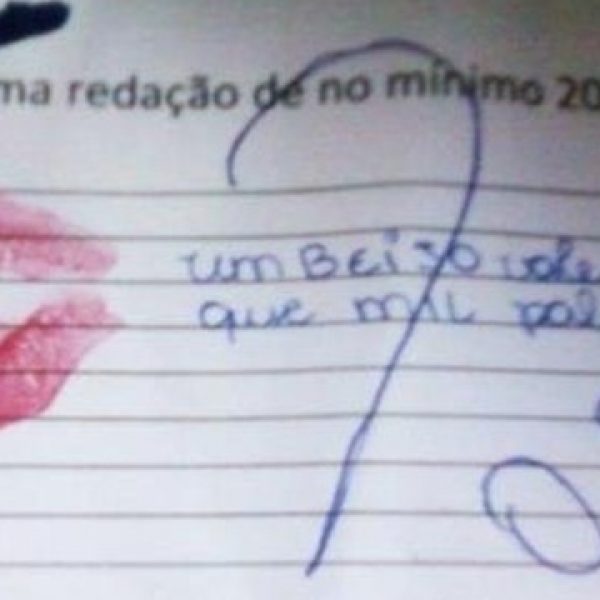 ma redação de no mínimo 20
um BEijo vale
que mil pal